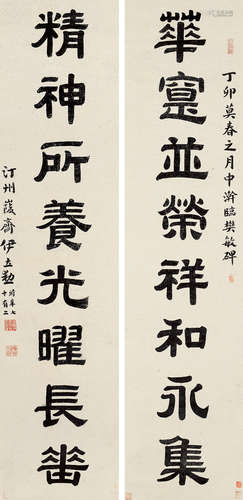 丁卯莫春之月中澣臨樊敏碑
華寔並榮祥和永集
精神所養光曜長
汀州峻齋伊立勳時年七
十有二